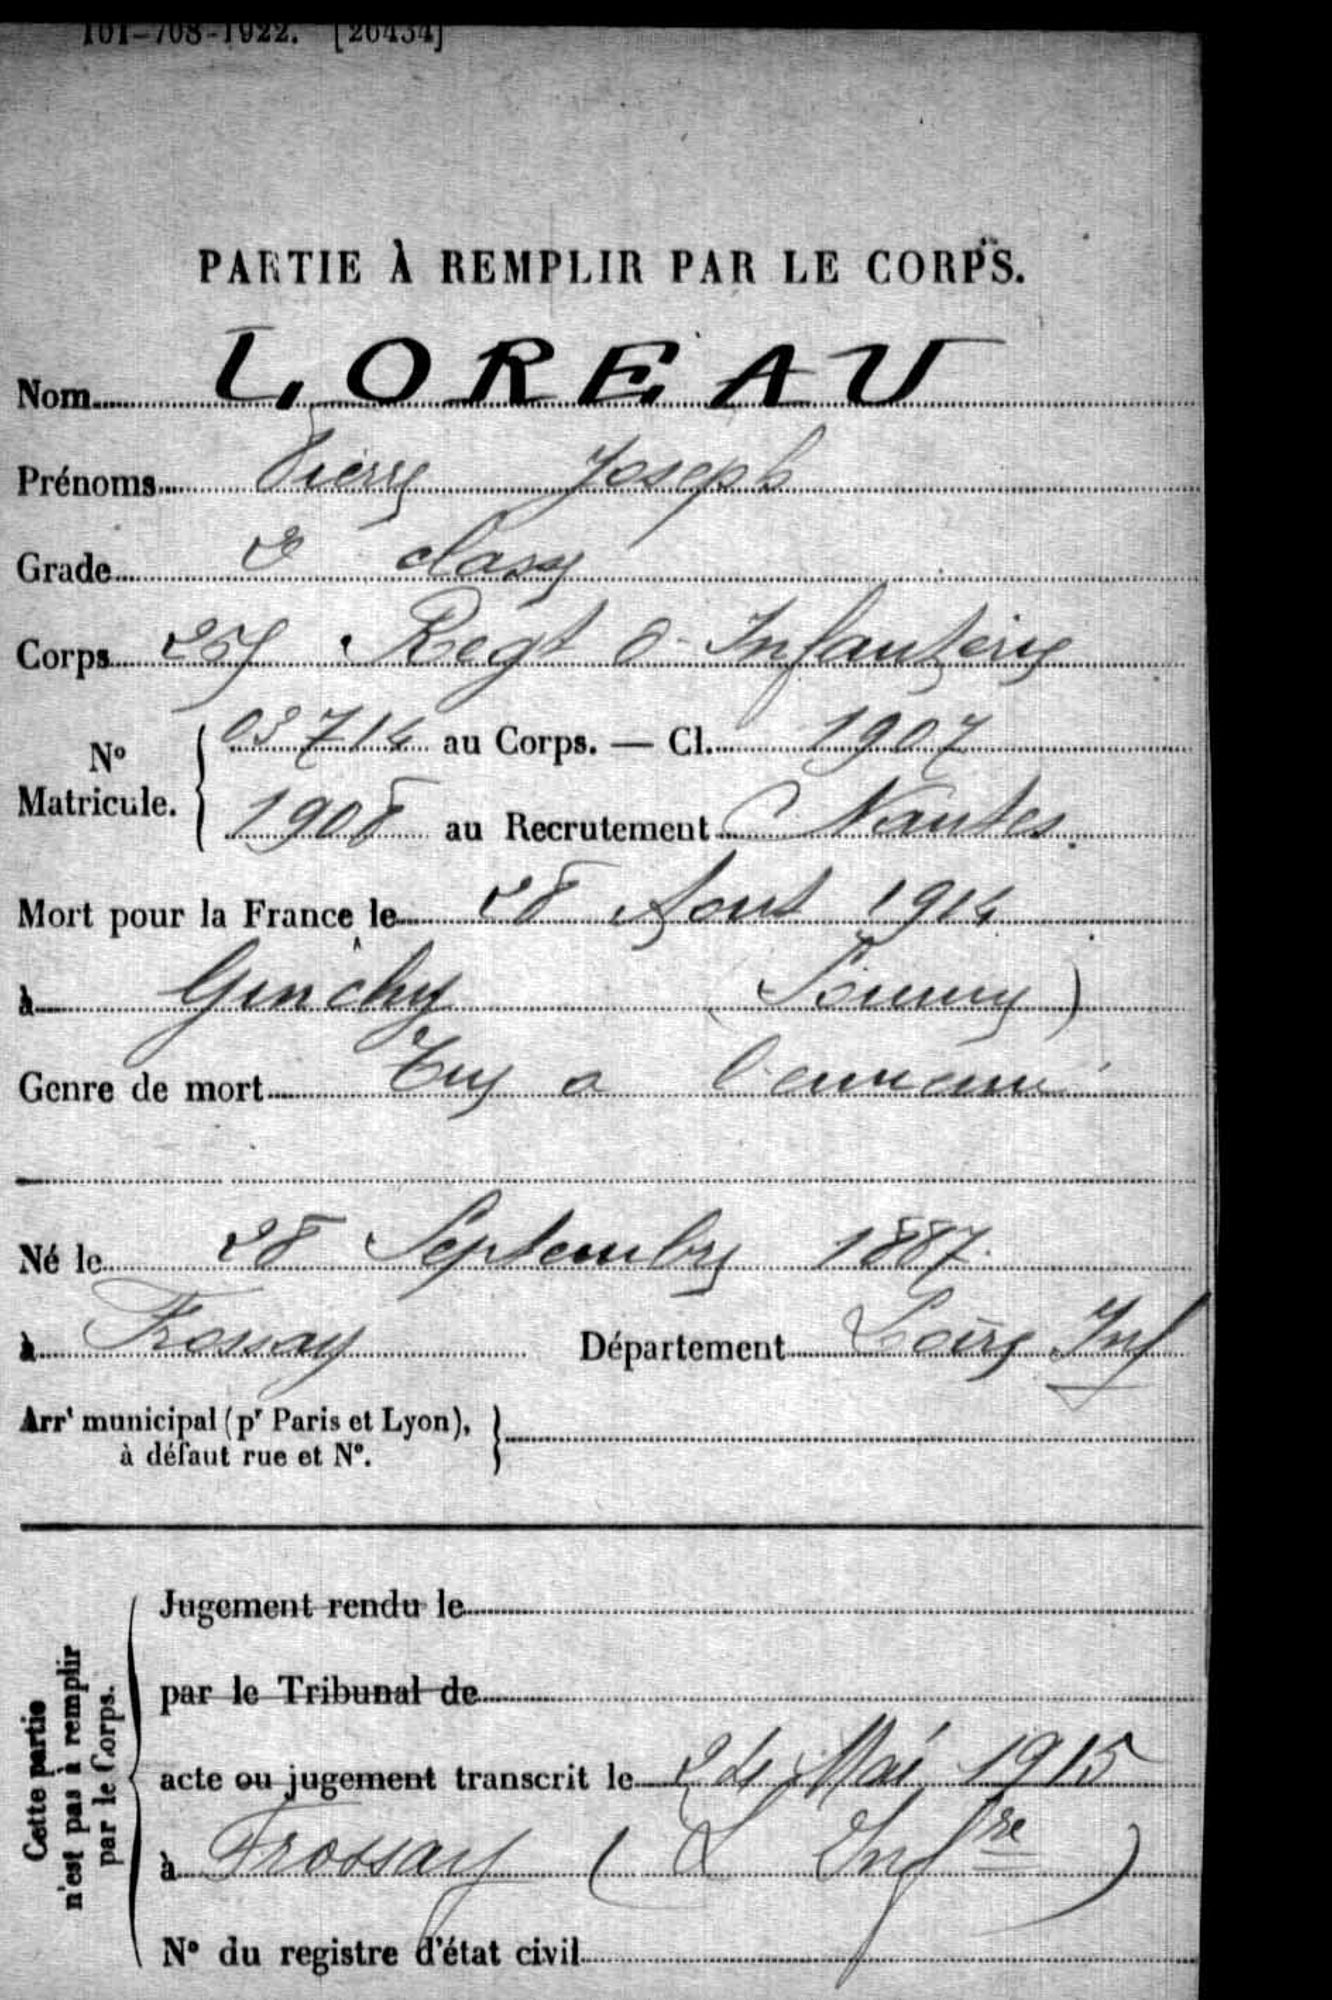 101-708-1922. [26434]
PARTIE À REMPLIR PAR LE CORPS.
Nom LOREAU
Prénoms Pierre Joseph
Grade 2e classe
Corps Regt d'Infanterie
03714 au Corps. — Cl. 1907
N° Matricule.
1908 au Recrutement Nantes
Mort pour la France le 28 Aout 1914
à Ginchy (Somme)
Genre de mort Tué a l'ennemi
Né le 28 Septembre 1887
à Frossay Département Loire Inf
Arrt municipal (pr Paris et Lyon),
à défaut rue et N°.
Cette partie n'est pas à remplir par le Corps.
Jugement rendu le
par le Tribunal de
acte ou jugement transcrit le 24 Mai 1915
à Frossay (L Infre)
N° du registre d'état civil